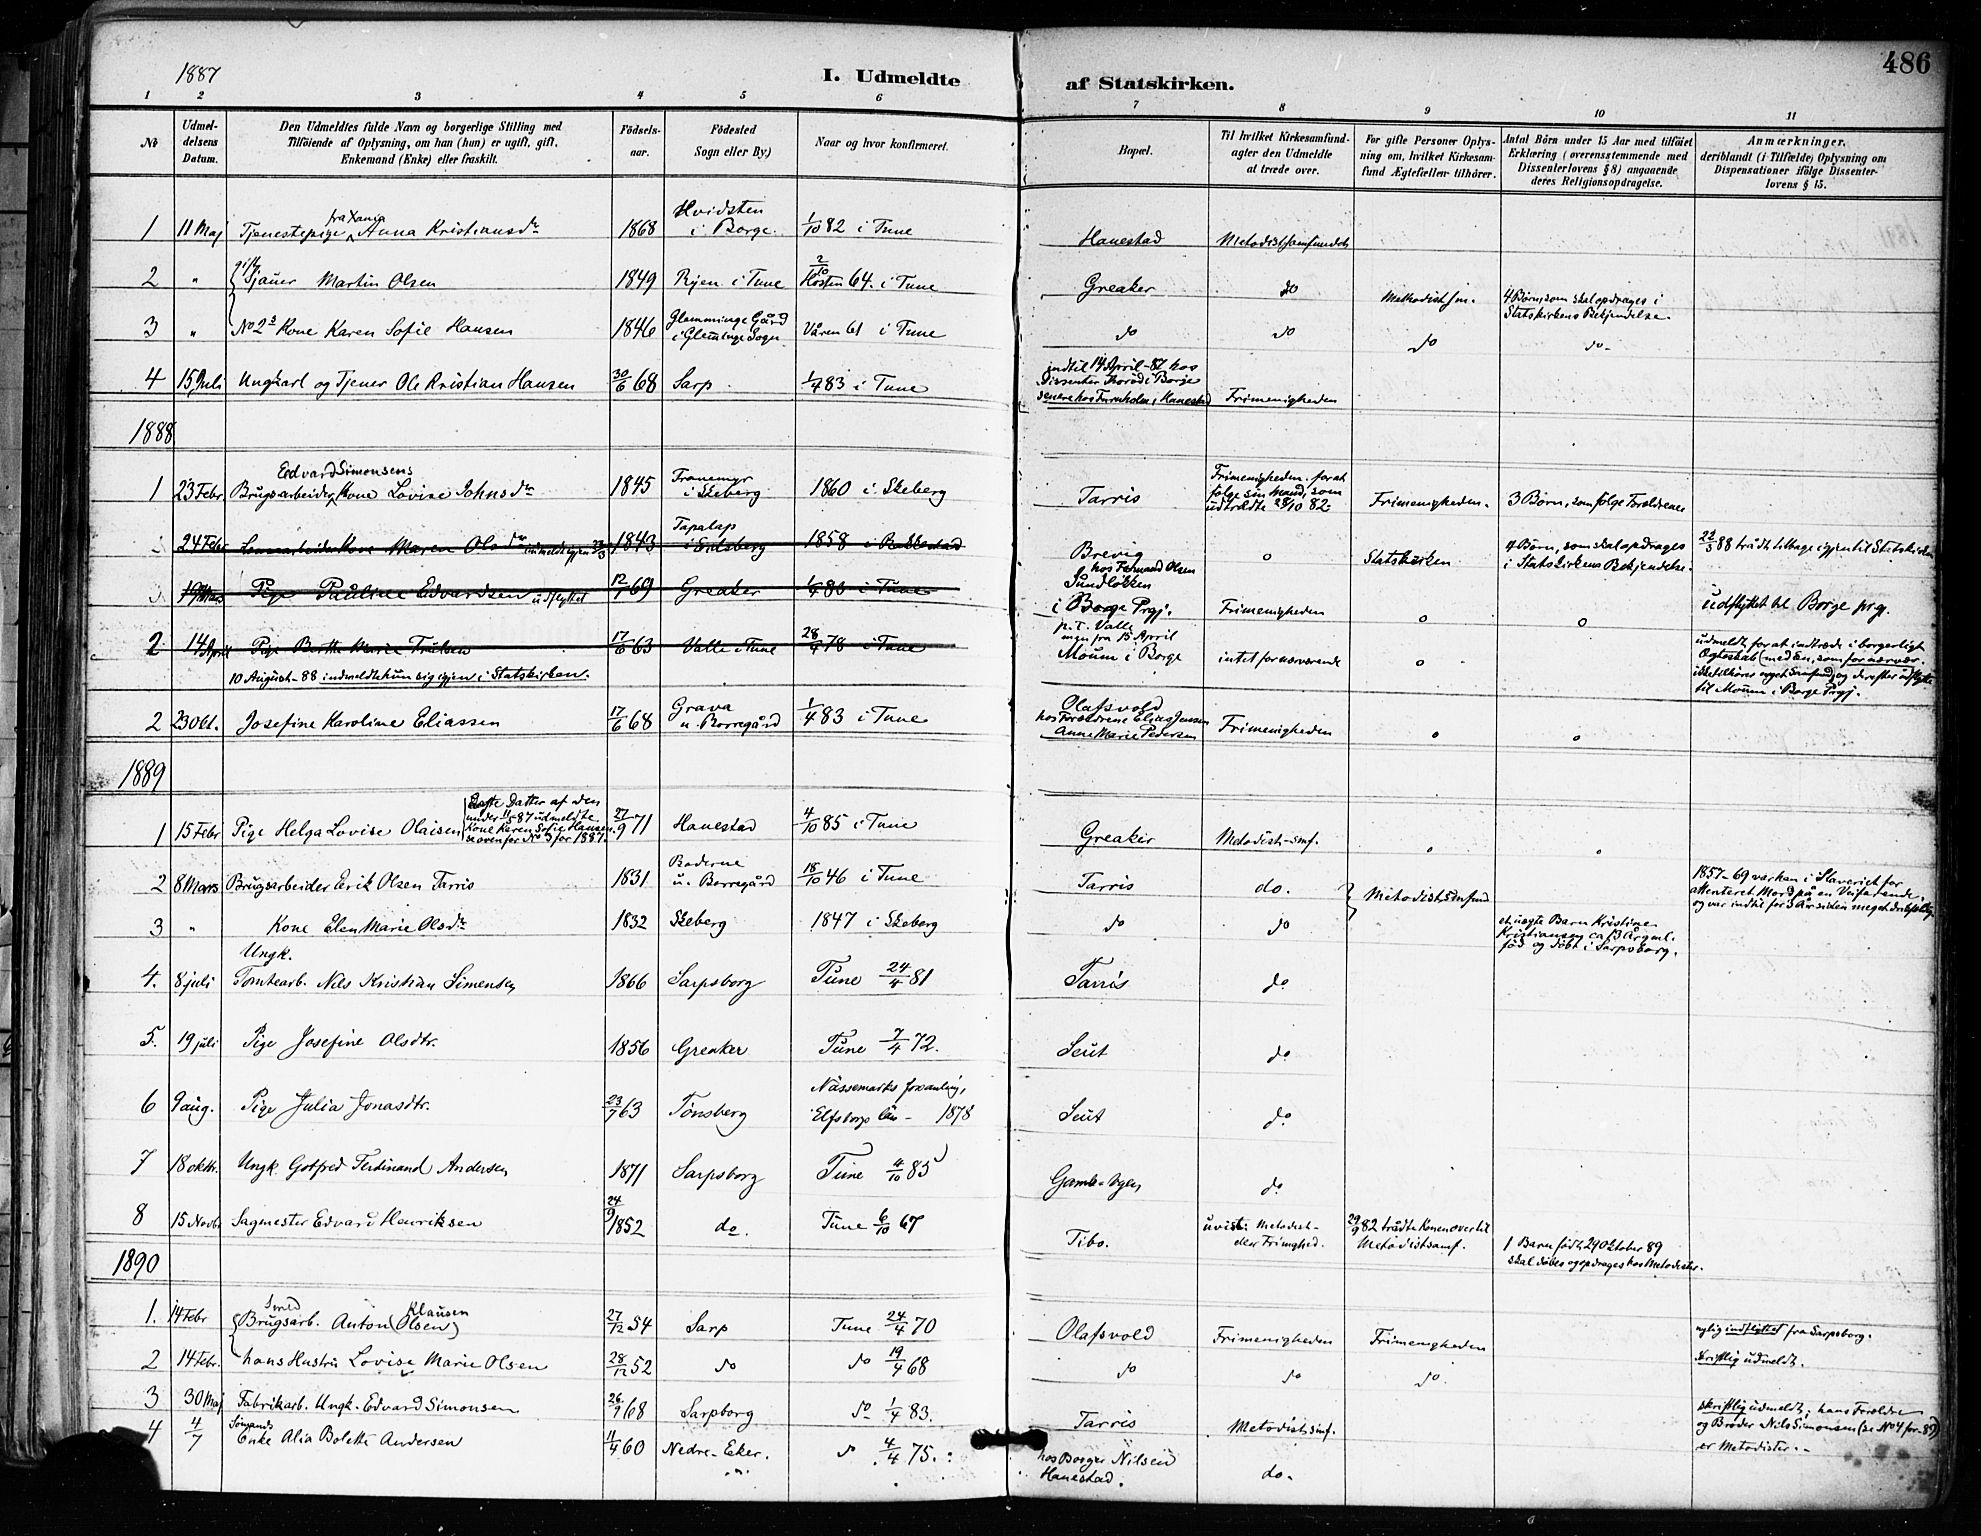 486
1887
I. Udmeldte af Statskirken.
1 2 3 4 5 6 7 8 9 10 11
No
Udmel-
delsens
Datum.
Den Udmeldtes fulde Navn og borgerlige Stilling med
Tilføiende af Oplysning, om han (hun) er ugift, gift,
Enkemand (Enke) eller fraskilt.
Fødsels-
aar.
Fødested
Sogn eller By)
Naar og hvor konfirmeret.
Bopæl.
Til hvilket Kirkesamfund-
agter den Udmeldte
at træde over.
For gifte Personer Oplys-
ning om, hvilket Kirkesam-
fund Ægtefællen tilhører.
Antal Børn under 15 Aar med tilføiet
Erklæring (overensstemmende med
Dissenterlovens § 8) angaaende
deres Religionsopdragelse.
Anmærkninger,
deriblandt (i Tilfælde) Oplysning om
Dispensationer ifølge Dissenter-
lovens § 15.
1 11 Maj Tjenestepige fra Xania Anna Kristiansdr 1868 Hvidsten i Borge 1/10 82 i Tune Hanestad Metodistsamfundet
2 " gift Sjauer Martin Olsen 1849 Ryen i Tune 2/10 Høsten 64. i Tune Greaker do Methodistsm. 4 Børn, som skal opdrages i
Statskirkens Bekjendelse.
3 " No 2s Kone Karen Sofie Hansen 1846 Glemminge Gård
i Glemminge Sogn Våren 61 i Tune do do do do
4 15 Juli Ungkarl og Tjener Ole Kristian Hansen 30/6 68 Sarp 1/4 83 i Tune indtil 14 April -87 hos
Dissenter Thorød i Borge
senere hos Furuholm, Hanestad Frimenigheden
1888
1 23 Febr Brugsarbeider Edvard Simonsens Kone Lovise Johnsdr 1845 Franemyr
i Skeberg 1860 i Skeberg Tarris Frimenigheden, for at
følge sin Mand, som
udtrædte 28/10 82- Frimenigheden. 3 Børn, som følge Forældrene
24 Febr Kone Maren Olsdr indmeldt igjen 22/3 1843 Tapalap
i Eidsberg 1858 i Rakkestad Brevig o Statskirken 4 Børn, som skal opdrages
i Statskirkens Bekjendelse. 22/3 88 trådt tilbage igjen til Statskirken
19 Mars Pige Pauline Edvardsen udflyttet 12/7 69 Greaker 1/4 83 i Tune hos Fernand Olsen
Sundløkken
i Borge Prgj. Frimenigheden o o udflyttet til Borge prgj.
2 14 April Pige Berthe Marie Trulsen 17/6 63 Valle i Tune 28/4 78 i Tune p.t. Valle
men fra 15 April
Moum i Borge intet for nærværende o udmeldt for at indtræde i borgerligt
Ægteskab (med En, som for nærvær.
ikke tilhører noget Samfund) og derefter udflytte
til Moum i Borge Prgj.
10 August - 88 indmeldte hun sig igjen i Statskirken.
2 23 Okt. Josefine Karoline Eliassen 17/6 68 Grava
u. Borregård 1/4 83 i Tune Olafsvold
hos Forældrene Elias Jensen
Anne Marie Pedersen Frimenigheden o o
1889
1 15 Febr Pige Helga Lovise Olaisen ægte Datter af den
under 11/5 87 udmeldte
Kone Karen Sofie Hansen
se ovenfor No 3 for 1887. 27/9 71 Hanestad 4/10 85 i Tune Greaker Metodist-smf. " "
2 8 Mars Brugsarbeider Erik Olsen Tarris 1831 Boderne
u. Borregård 18/10 46 i Tune Tarris do. Metodistsamfund 1857-69 var han i Slaveriet for
attenteret Mord på en Veifarende,
og var indtil for 3 År siden meget drikfældig
3 " Kone Elen Marie Olsdr 1832 Skeberg 1847 i Skeberg do do et uægte Barn Kristine
Kristiansen ca 13 År gml.
fød og døbt i Sarpsborg.
4. 8 juli Ungk.
Tomtearb. Nils Kristian Simensen 1866 Sarpsborg Tune 24/4 81 Tarris do
5. 19 juli Pige Josefine Olsdtr. 1856 Greaker Tune 7/4 72. Seut do
6 9 aug. Pige Julia Jonasdtr. 23/7 63 Tønsberg Nässemarks forsamling,
Elfsborgs län - 1878 Seut do
7 18 oktbr. Ungk. Gotfred Ferdinand Andersen 1871 Sarpsborg Tune 4/10 85 do
8 15 Novbr Sagmester Edvard Henriksen 24/9 1852 do. Tune 6/10 67 Tibo. uvist: Metodist-
eller Frimghed. 29/9 82 trådte Konen over til
Metodistsamf. 1 Barn født 29 Oktober 89
skal døbes og opdrages hos Metodister.
1890
1. 14 Febr Smed
Brugsarb. Anton (Klausen Olsen) 27/12 54 Sarp Tune 24/4 70 Olafsvold Frimenigheden Frimenigheden nylig indflyttet fra Sarpsborg.
2 14 Febr. hans Hustru Lovise Marie Olsen 28/12 52 do do 19/4 68 do do do. Skriftlig udmeldt.
3 30 Maj Fabrikarb. Ungk. Edvard Simonsen 26/7 68 Sarpsborg do 1/4 83. Tarris Metodistsmf. skriftlig udmeldt; hans Forældre
og Broder Nils Simonsen (se No 4 for -89)
er Metodister.-
4 4/7 Sømands
Enke Alia Bolette Andersen 11/4 60 Nedre-Eker. do 4/4 75. hos Borger Nilsen
Hanestad. do.